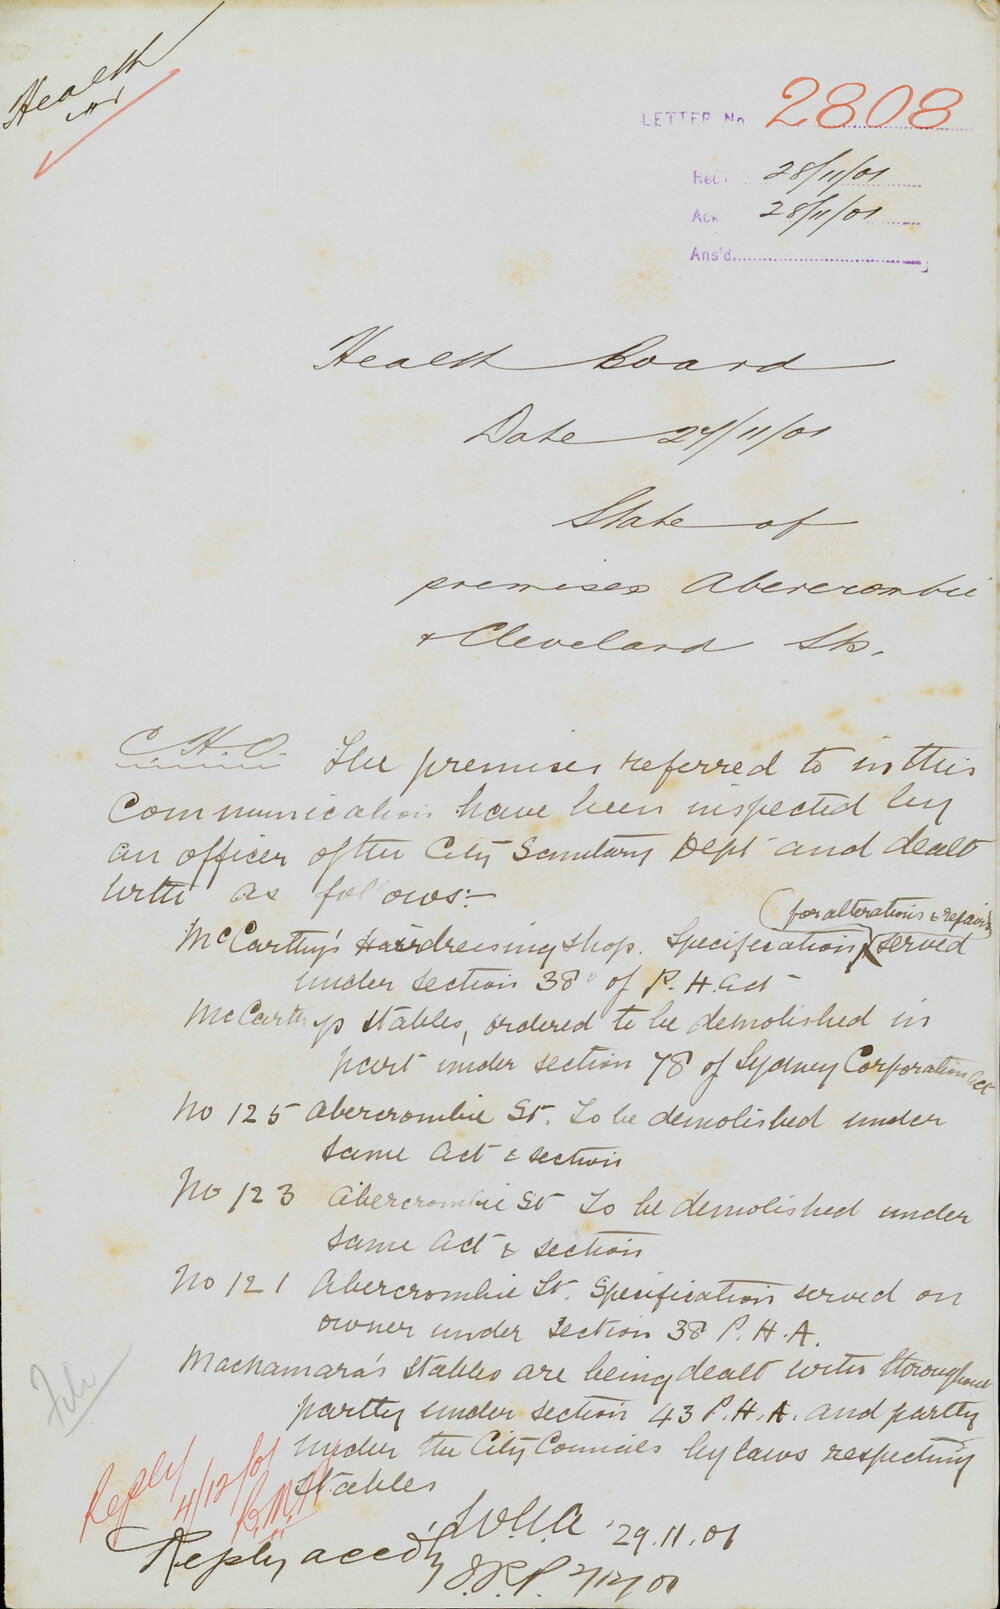 Health
LETTER No 2808
Rec. 28/11/01
Ack 28/11/01
Ans'd
Health Board
Date 27/11/01
State of
premises Abercrombie
& Cleveland Sts.
C.H.O. The premises referred to in this
Communication have been inspected by
an officer of the City Sanitary Dept and dealt
with as follows:-
(for alterations & repairs)
McCarthy's Hairdressing shop. Specification served
under section 38 of P.H. Act
McCarthys stables, ordered to be demolished in
part under section 78 of Sydney Corporation Act
No 125 Abercrombie St. To be demolished under
same Act & section
No 123 Abercrombie St To be demolished under
same Act & section
No 121 Abercrombie St. Specification served on
owner under Section 38 P.H.A.
Macnamara's Stables are being dealt with throughout
partly under section 43 P.H.A. and partly
under the City Councils by laws respecting
Stables
File
Reply
4/12/01
29.11.01
Reply accdly
2/12/01